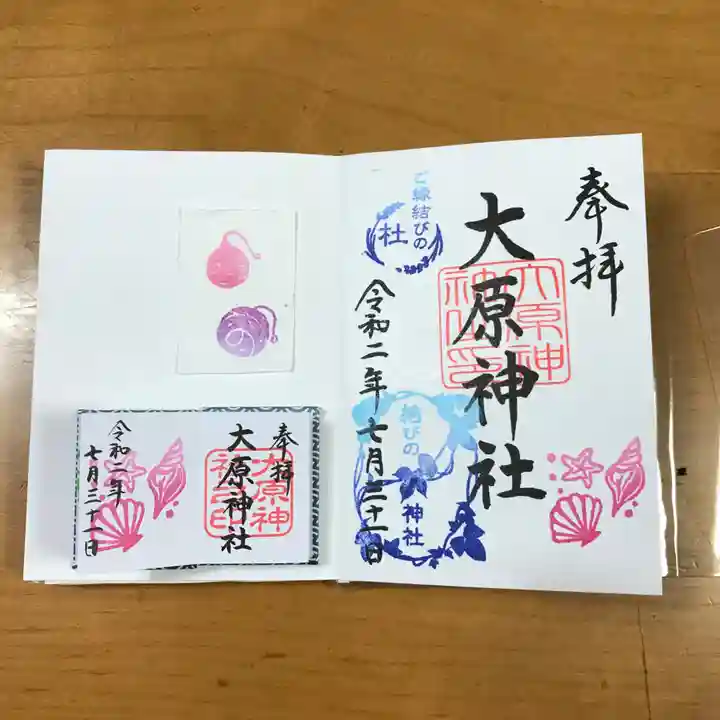 奉拝
大原神社
大原神社印
ご縁結びの
社
令和二年七月三十一日
結びの
神社
奉拝
大原神社
大原神社印
令和二年
七月三十一日